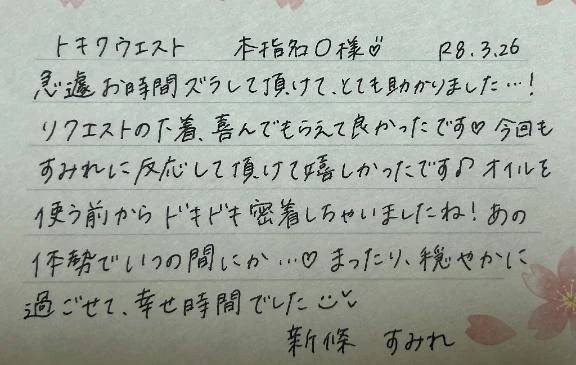 トキワウエスト　本指名O様♡　R8.3.26
急遽お時間ズラして頂けて、とても助かりました…！
リクエストの下着、喜んでもらえて良かったです♡ 今回も
すみれに反応して頂けて嬉しかったです♪ オイルを
使う前からドキドキ密着しちゃいましたね！あの
体勢でいつの間にか…♡ まったり、穏やかに
過ごせて、幸せ時間でした
新條　すみれ